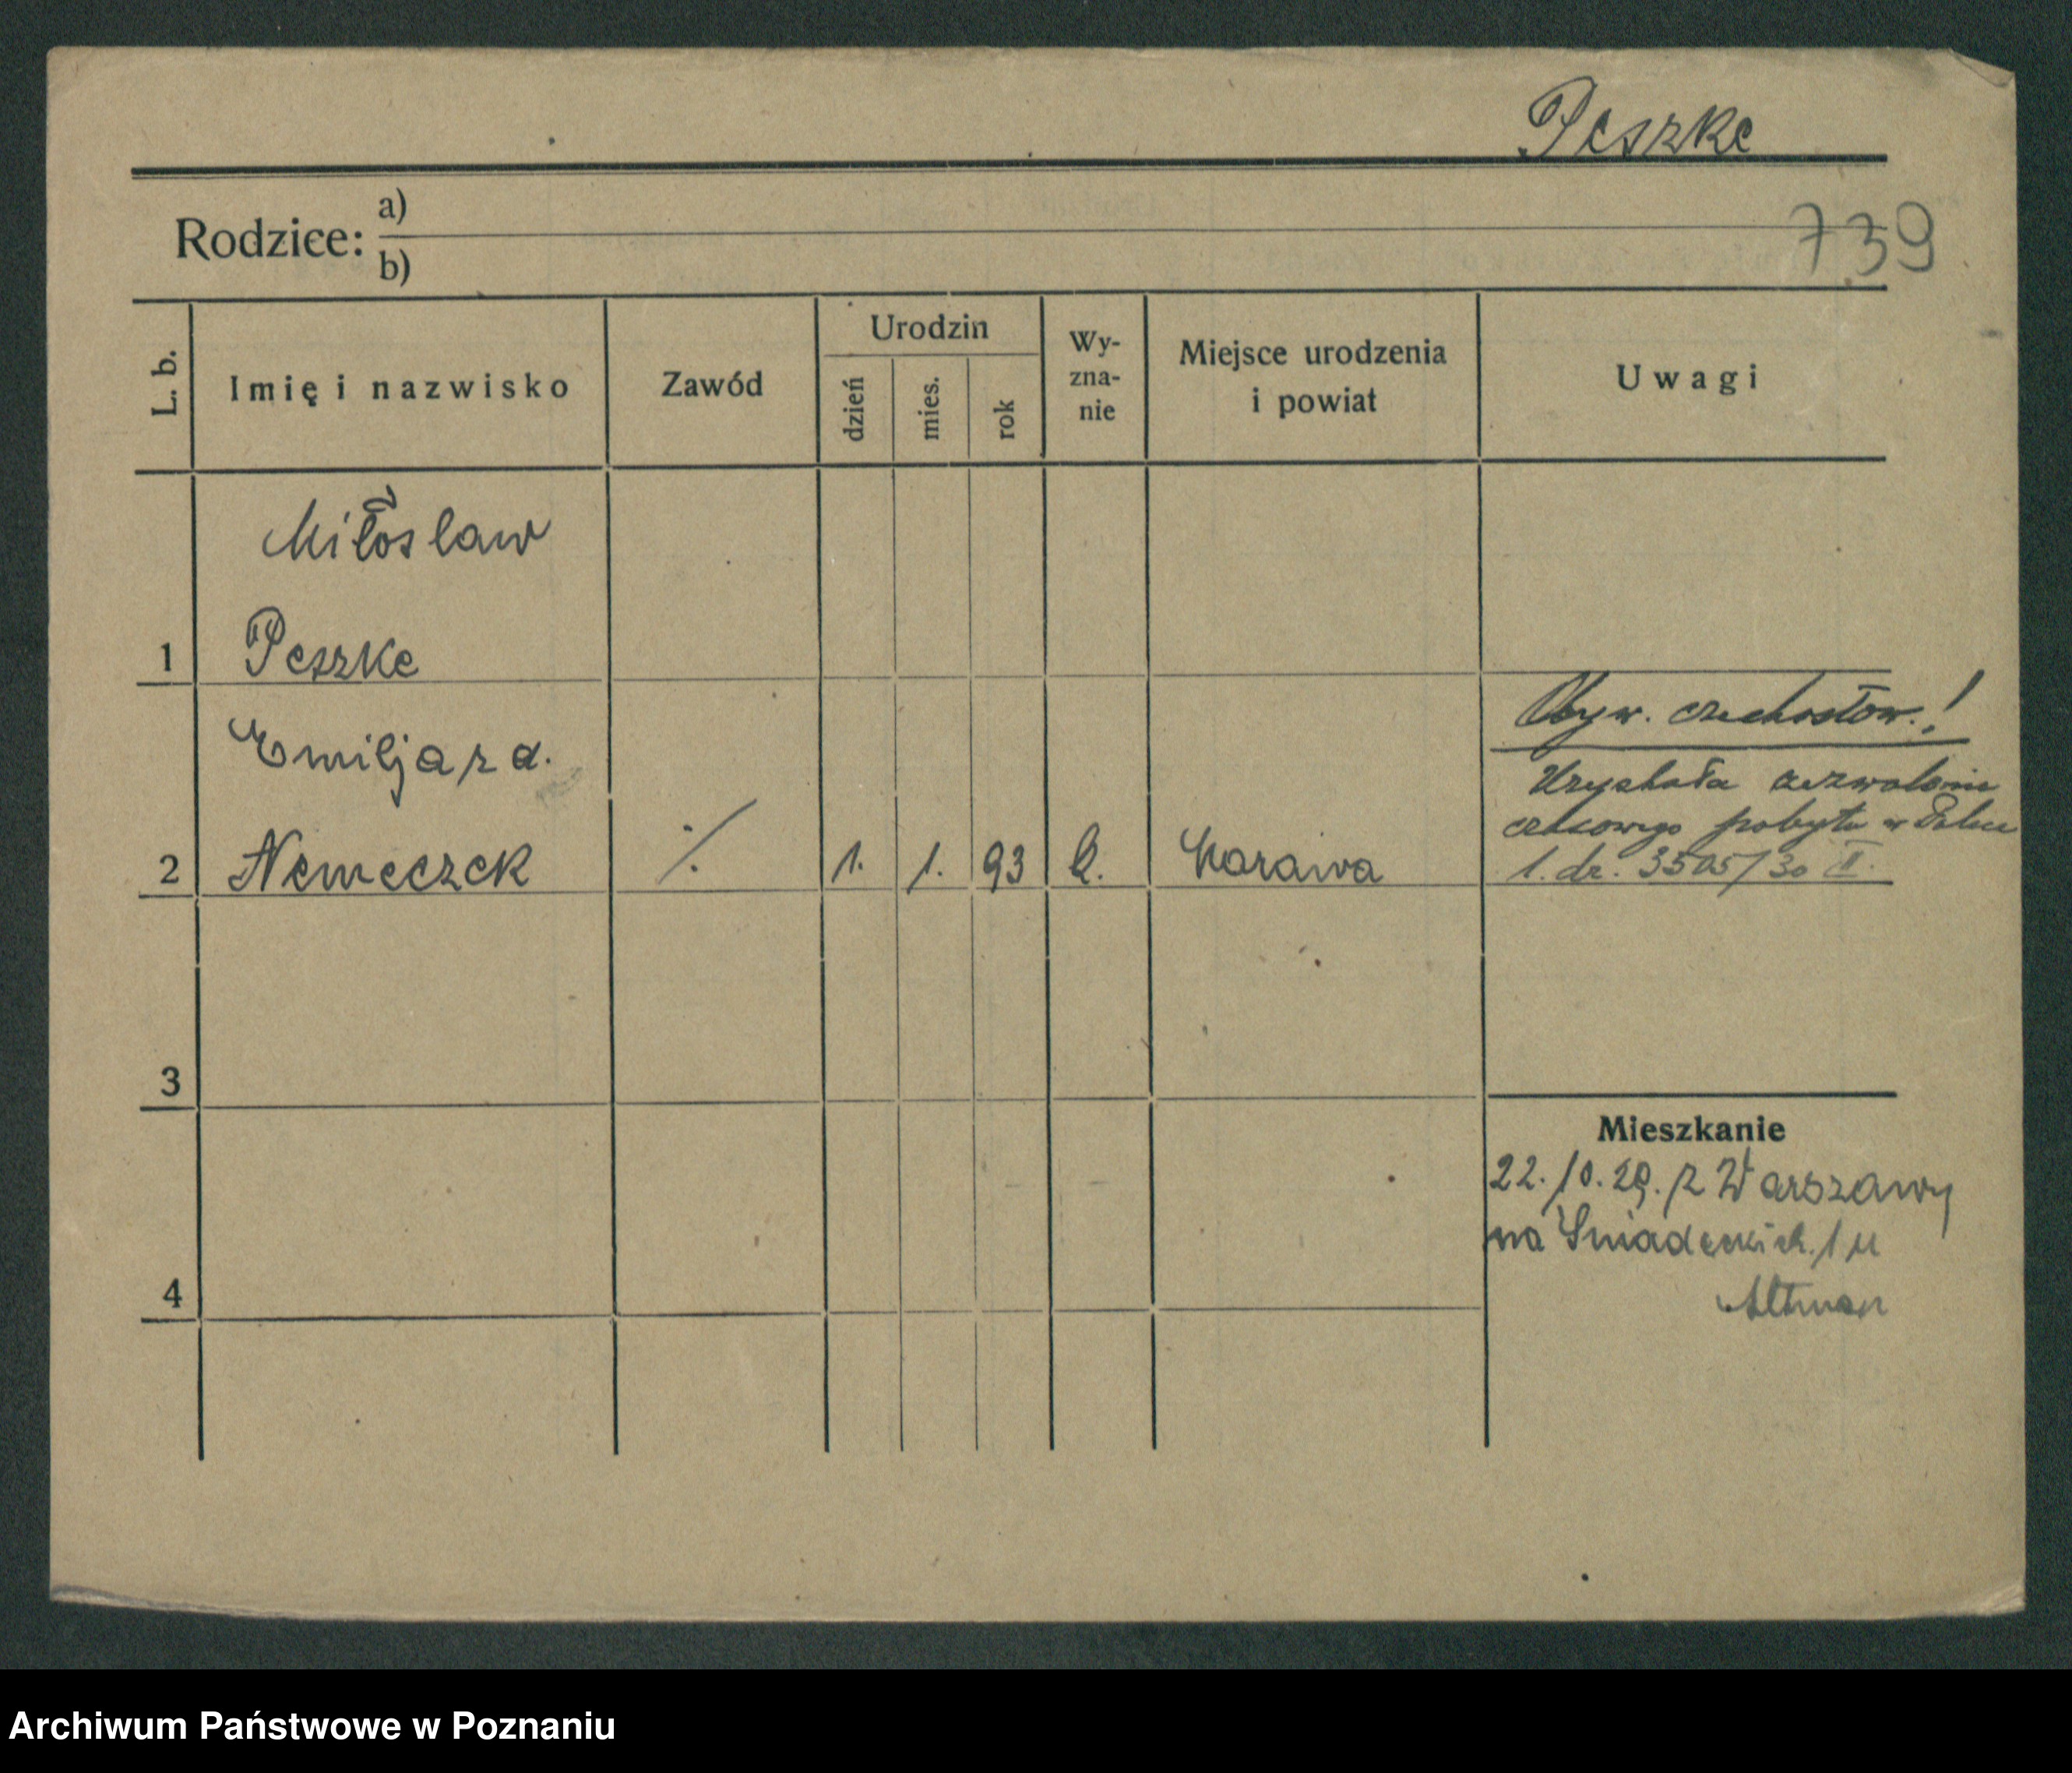 Peszke
Rodzice: a)
b)
739
L. b.
Imię i nazwisko
Zawód
Urodzin
dzień
mies.
rok
Wy-
zna-
nie
Miejsce urodzenia
i powiat
Uwagi
Miłoslaw
1 Peszke
Emilja z d.
2 Nemeczek ./. 1. 1. 93
Obyw. czechosłow.!
Uzyskała zezwolenie
czasowego pobytu w Polsce
l. dz. 3505/30 II.
3
4
Mieszkanie
22. 10. 29. z Warszawy
na Śniadeckich 1 u
Altman
Archiwum Państwowe w Poznaniu